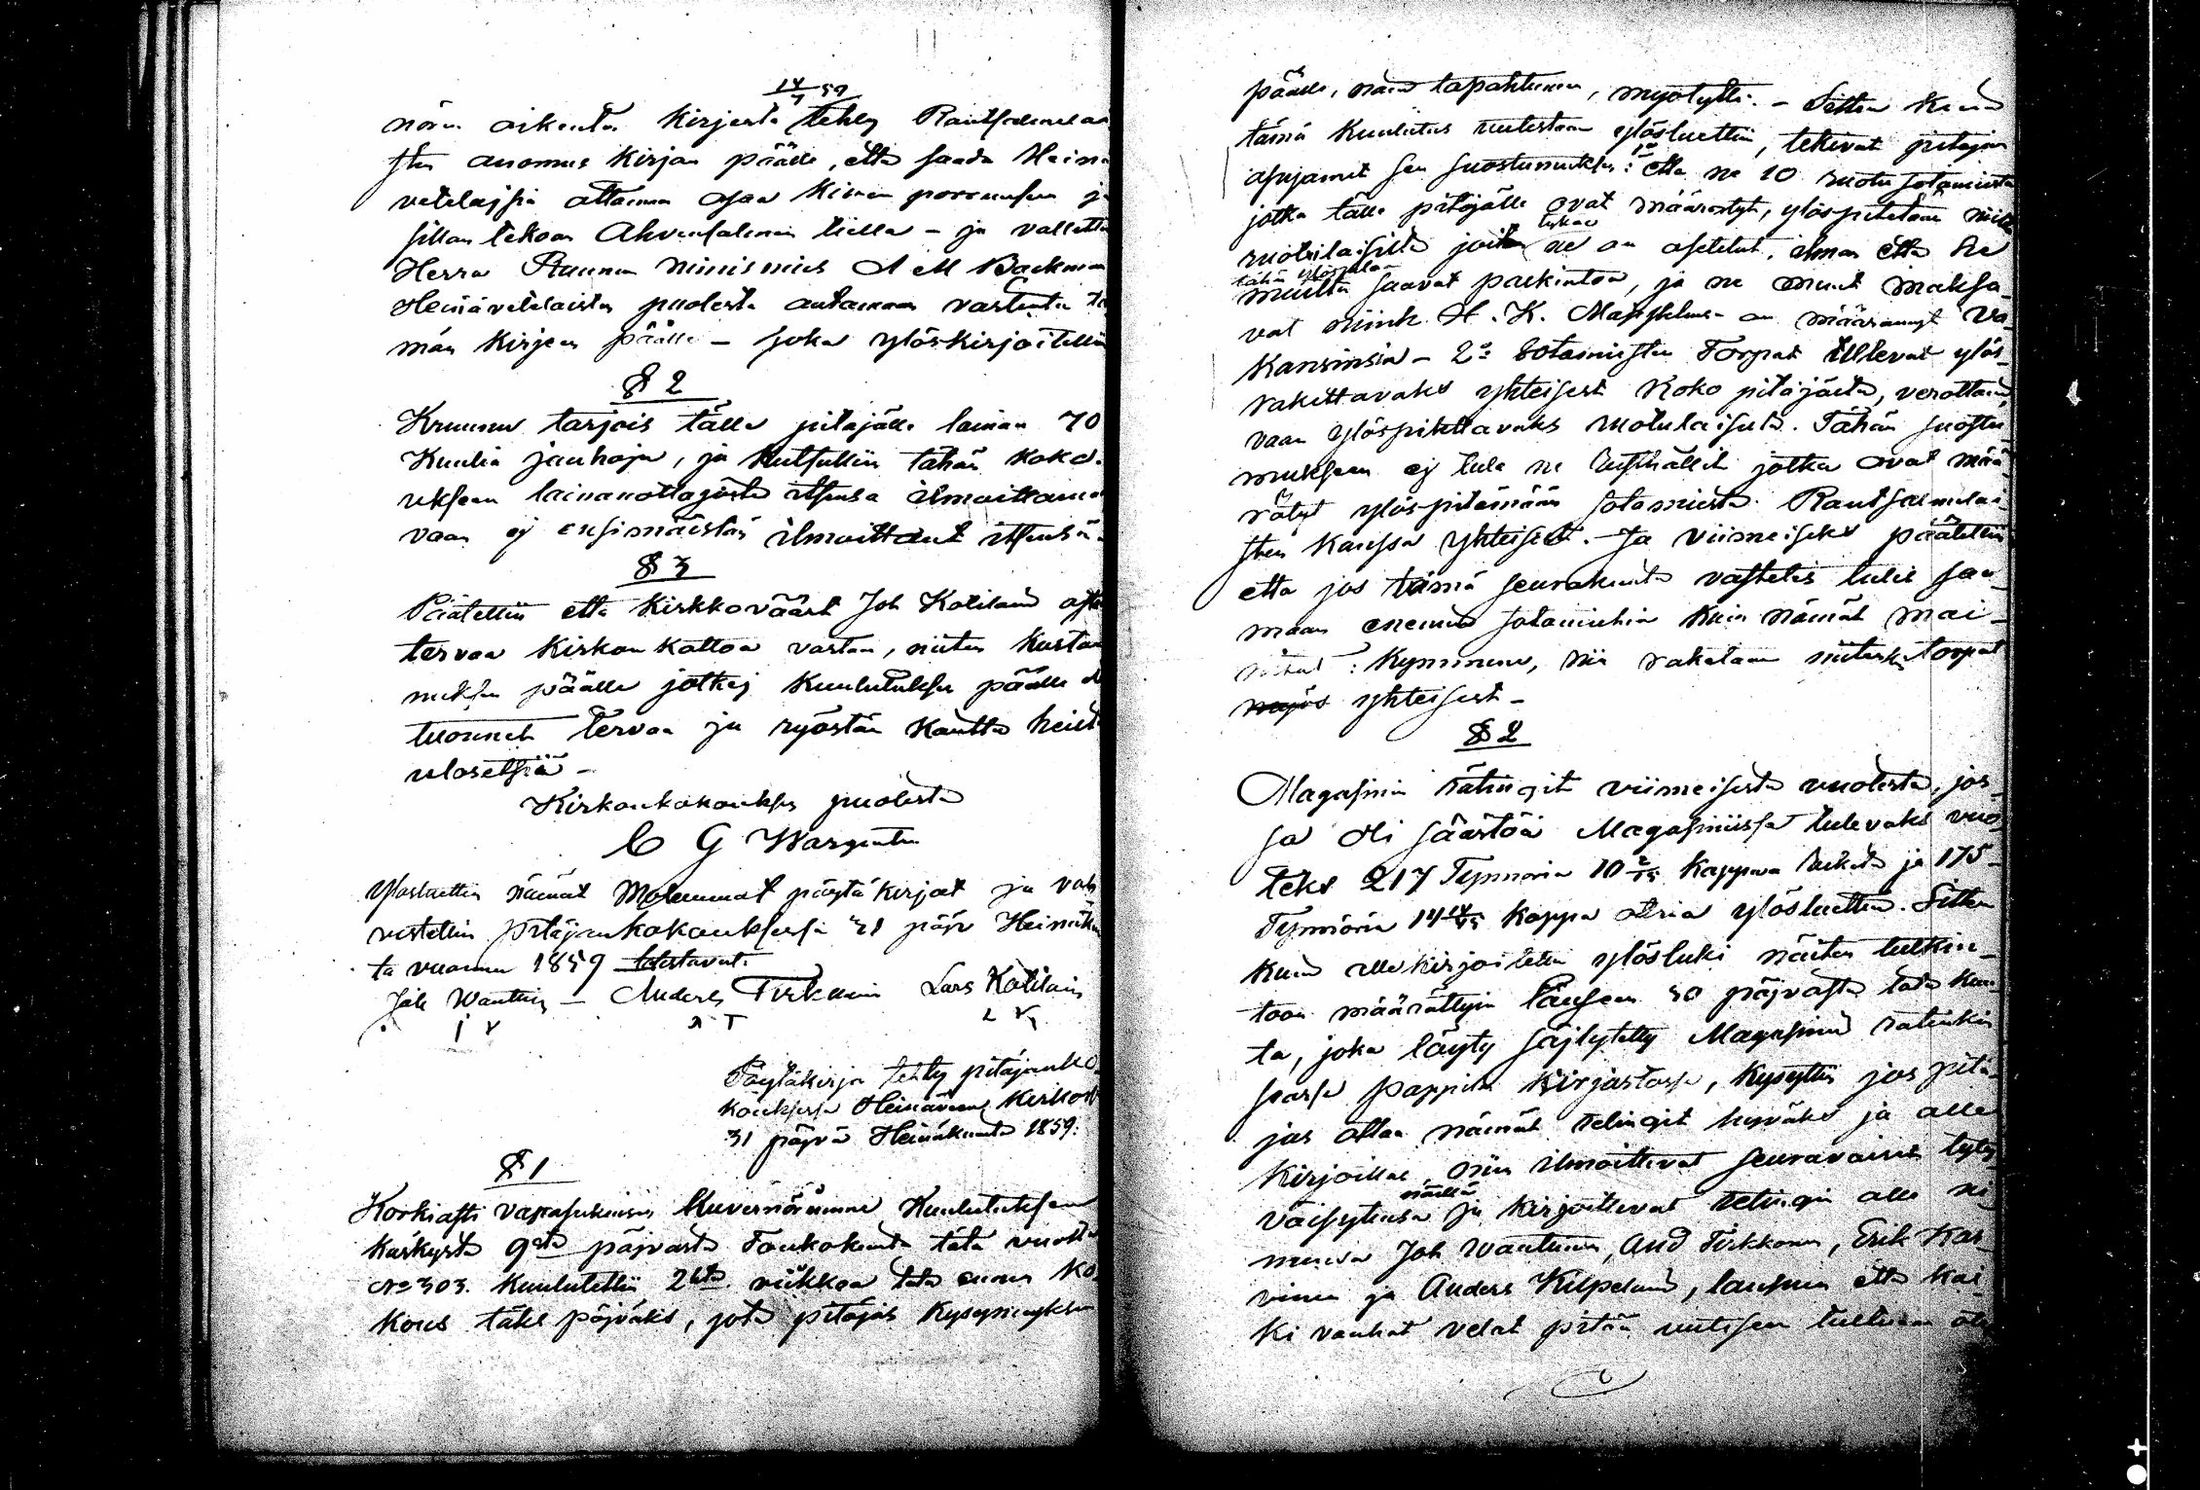 14/7 59
nörin oikeuta kirjasta tehty Rantsalmelai
sten anomus kirjan päälle, että saada Heinä
vetelaisia ottaman osaa kiinni porrausen ja
sillan tekoon Ahvensalmen tiellä – ja valletti
Herra Ruunun nimismies A M Backman
Heinävetelaisten puolesta antaman vastausta tä
män kirjeen päälle – joka ylöskirjoitettiin
§ 2
Kruunu tarjois tälle pitäjälle lainan 70
Kuulia jauhoja, ja kutsuttiin tähän koko-
uksen lainanottajoista itsensä ilmoittaman
vaan ej ensimäistän ilmoittant itsensä.
§ 3
Päätettiin etta kirkkoväärt Joh Kotilaind osta
tervaa kirkon kattoa vastan, niiten kustan
nuksen päälle jotkej kuulutuksen päälle ole
tuonneet tervaa ja ryöstön kautta heistä
ulosetsiä –
Kirkonkokouksen puolesta
C G Wargentin
Ylösluettiin nämät molemmat pöytäkirjat ja vah
vistettiin pitäjänkokouksessa 31 päjv Heinäku
ta vuonna 1859 todistavat.
Joh Wäntinen – Anders Tirkkoin Lars Kotilain
I V A T L K
Pöytäkirja tehty pitäjänko-
kouksessa Heinäveen kirkos
31 päjvä Heinäkuuta 1859:
§ 1
Korkiasti vapasukuisen Kuvernörimme Kuulutuksen
käskystä 9stä päjvästä Toukokuuta tätä vuotta
No 303. kuulutettiin 2ta viikkoa tata ennen ko-
kous täksi päjväksi, jota pitäjäs kysymyksen
päälle, näin tapahtuman, myötytti. – Sitten kuin
tämä kuulutus uutestan ylösluettiin, tekivat pitäjän
asujamet sen suostumuksen: 1o että ne 10 ruotu sotamiesta
jotka tälle pitäjälle ovat määrätyt, ylöspitetään niiltä
ruotulaisilta joiten tykö ne on asetetut, ilman että he
tähän ylöspitoon
muilta saavat palkintoa, ja ne muut maksa-
vat niink H. K. Majsteetti on määrännyt Va-
kansinsia – 2o Sotamiesten Torpat tulevat ylös-
rakettavaks yhteisest koko pitäjästä, verottain,
vaan ylöspitettavaks ruotulaisilta. Tähän suostu-
mukseen ej tule ne rusthållit jotka ovat mää-
rätyt ylöspitämään sotamiestä Rantsalmelai-
sten kanssa yhteisesti. – Ja viimeiseks päätettiin
etta jos tämä seurakunta vastedes tulis saa-
maan enemmä sotamiehiä kuin nämät mai-
nitut: kymmenen, niin raketaan niitenki torpat
myös yhteisest –
§ 2
Magasinin rätingit viimeisestä vuodesta, jos-
sa oli säästöä Magasiinissa tulevaks vuo-
teks 217 Tynnöriä 10 2/15 kappaa rukiita ja 175
Tynnöriä 14 14/15 kappa otria ylösluettiin. Sitten
kuin allekirjoitettu ylösluki näiten tutkin-
toon määrättyin lausseen 30 päjvästä tätä kuu-
ta, joka löyty säjlytetty Magasiinin ratinkien
jossa pappilan kirjastossa, kysyttiin jos pitä-
jäs ottaa nämät retingit hyväks ja alle
kirjoittaa, niin ilmoittivat seuravaiset tyty-
väisyytensä näillä ja kirjoittivat retingin alle ni-
mensä Joh Wäntinen, And Tirkkonen, Erik Kar-
vinen ja Anders Kilpeläind, lausuin että kai-
ki vanhat velat pitää uutisen tulluan ote